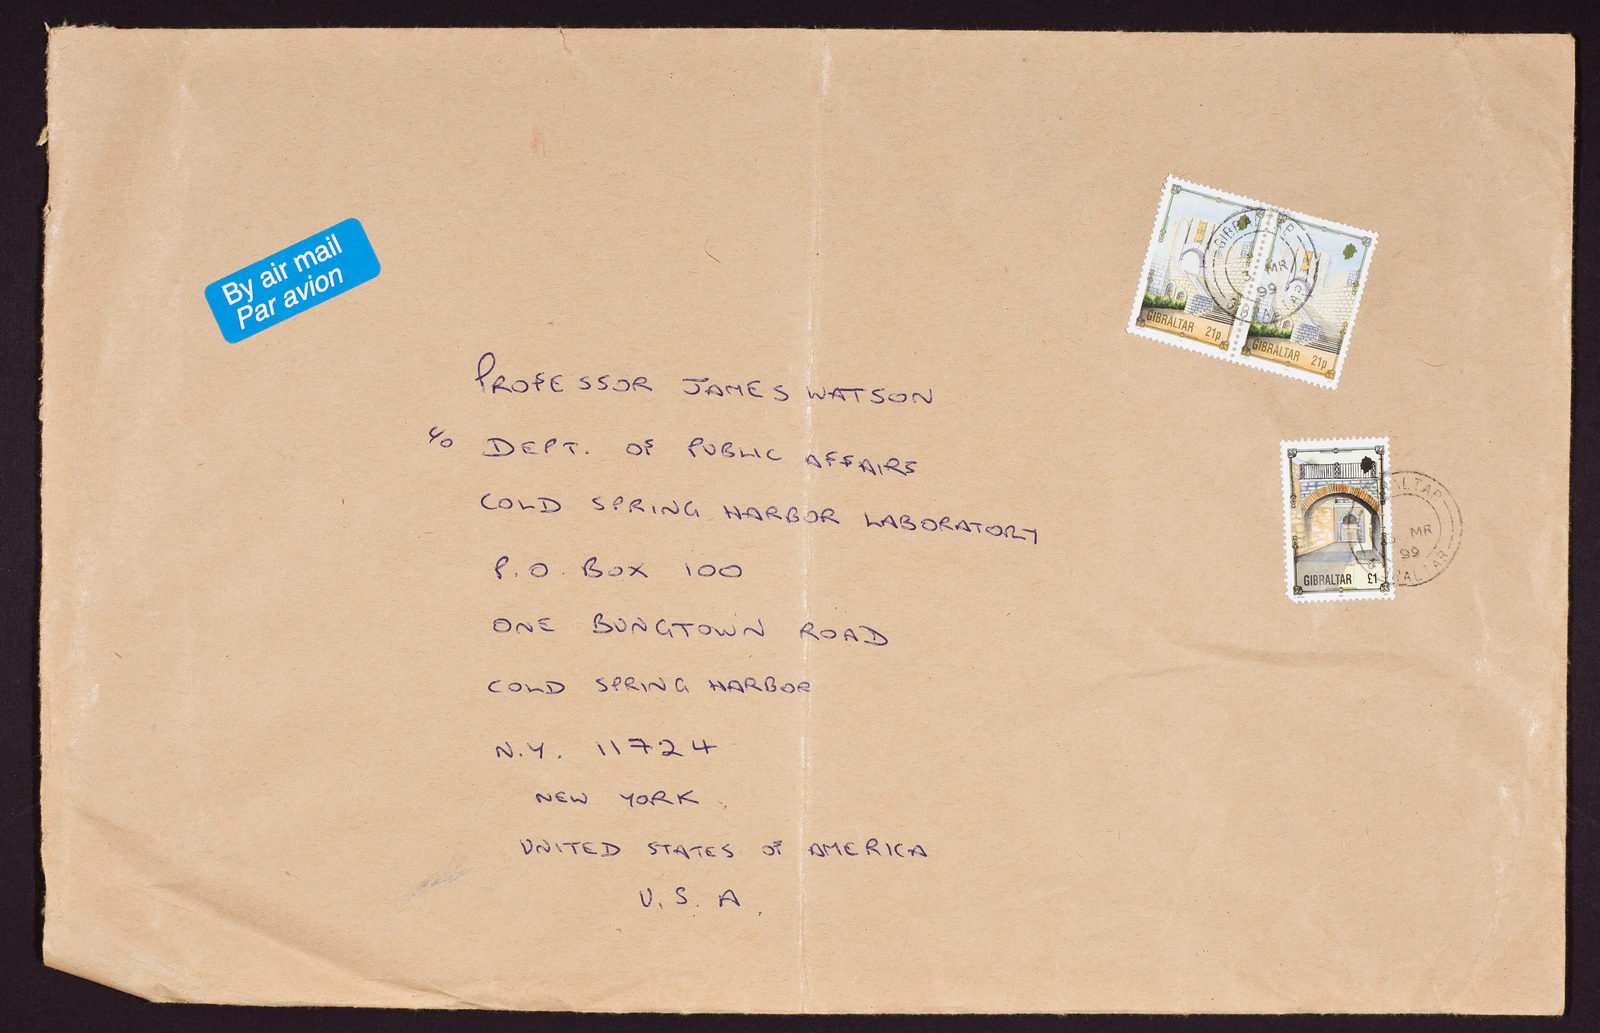 By air mail
Par avion
GIBRALTAR 21p
GIBRALTAR 21p
GIBRALTAR
MR
99
GIBRALTAR
PROFESSOR JAMES WATSON
c/o DEPT. OF PUBLIC AFFAIRS
COLD SPRING HARBOR LABORATORY
P.O. BOX 100
ONE BUNGTOWN ROAD
COLD SPRING HARBOR
N.Y. 11724
NEW YORK.
UNITED STATES OF AMERICA
U.S.A.
GIBRALTAR £1
MR
99